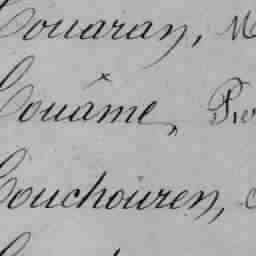 Couaran,
Couâme,
Couchouren,